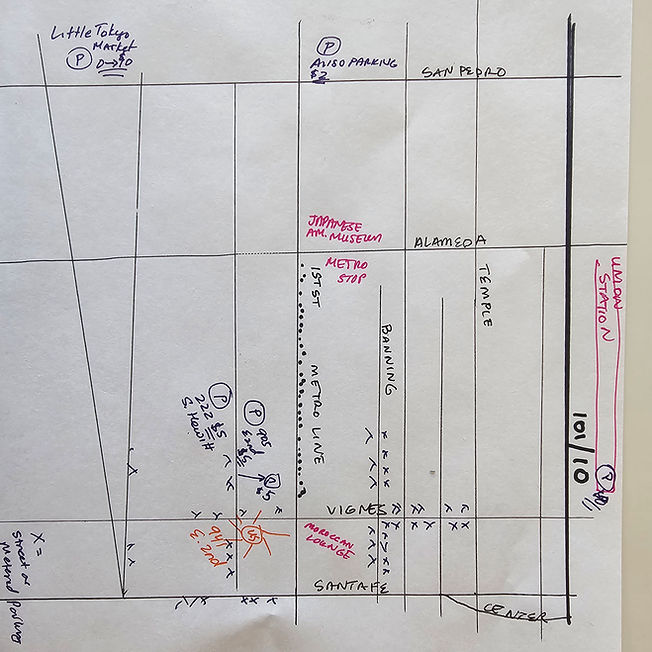 Little Tokyo
Market
P 0→$10
P
ALISO PARKING
$2
SAN PEDRO
JAPANESE
AM. MUSEUM
ALAMEDA
METRO
STOP
UNION
STATION
P
1ST ST
METRO LINE
BANNING
TEMPLE
101/10
P $5
222
S. Hewitt
P
$5
P
$5
VIGNES
US
MOROCCAN
LOUNGE
SANTA FE
CENTER
X =
street or
metered parking